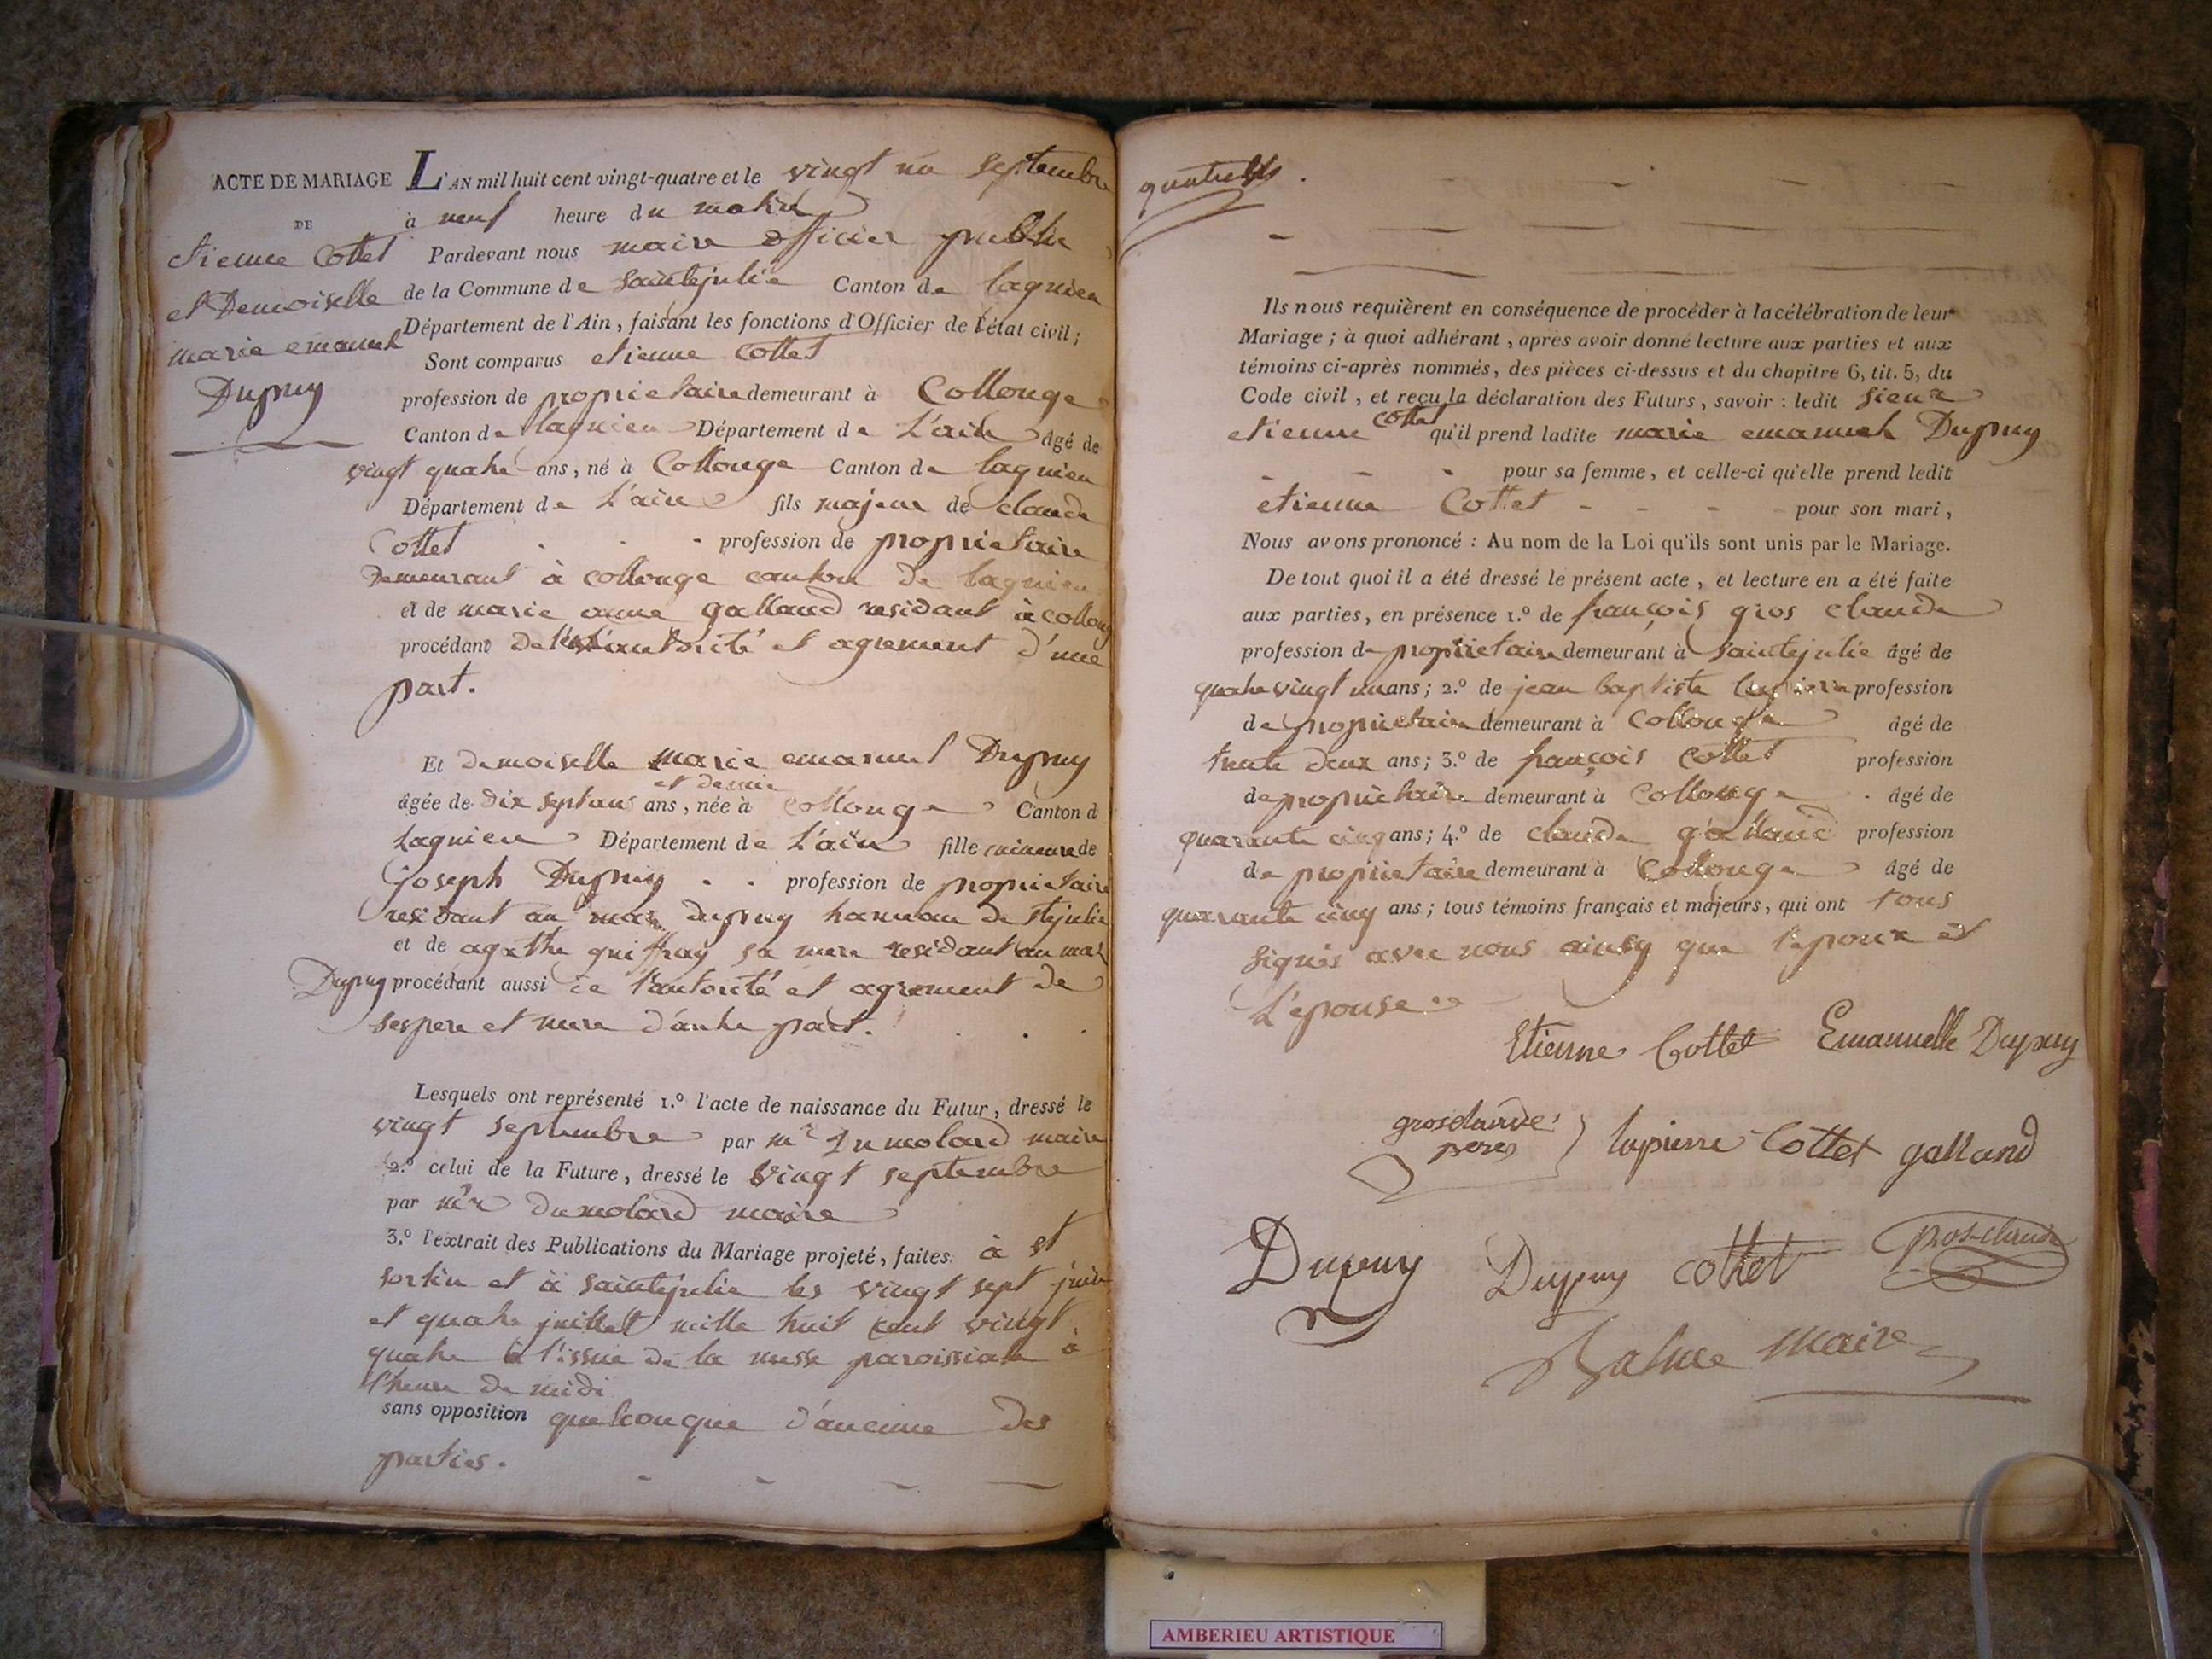 ACTE DE MARIAGE
DE
etienne Cottet
et Demoiselle
marie emanuel
Dupuy
L'AN mil huit cent vingt-quatre et le vingt un septembre
à neuf heure du matin
Pardevant nous maire officier public
de la Commune de Saintejulie Canton de lagnieu
Département de l'Ain, faisant les fonctions d'Officier de l'état civil;
Sont comparus etienne Cottet
profession de proprietaire demeurant à Collonge
Canton de lagnieu Département de L'ain âgé de
vingt quatre ans, né à Collonge Canton de lagnieu
Département de L'ain fils majeur de claude
Cottet profession de proprietaire
Demeurant à collonge canton de lagnieu
et de marie anne galland residant à collong
procédant de l'autorité et agrement d'une
part.
Et demoiselle marie emanuel Dupuy
et demie
âgée de dix sept ans ans, née à collonge Canton d
lagnieu Département de L'ain fille mineure de
Joseph Dupuy profession de proprietaire
residant au mas dupuy hameau de stejulie
et de agathe guiffray sa mere residant au mas
Dupuy procédant aussi de l'autorité et agrement de
ses pere et mere d'autre part.
Lesquels ont représenté 1.º l'acte de naissance du Futur, dressé le
vingt septembre par mr Dumolard maire
2.º celui de la Future, dressé le vingt septembre
par mr dumolard maire
3.º l'extrait des Publications du Mariage projeté, faites à st
sorlin et à saintejulie les vingt sept juin
et quatre juillet mille huit cent vingt
quatre à l'issue de la messe paroissiale à
l'heure de midi
sans opposition quelconque d'aucune des
parties.
Ils nous requièrent en conséquence de procéder à la célébration de leur
Mariage; à quoi adhérant, après avoir donné lecture aux parties et aux
témoins ci-après nommés, des pièces ci-dessus et du chapitre 6, tit. 5, du
Code civil, et reçu la déclaration des Futurs, savoir: ledit sieur
etienne cottet qu'il prend ladite marie emanuel Dupuy
pour sa femme, et celle-ci qu'elle prend ledit
etienne Cottet pour son mari,
Nous avons prononcé: Au nom de la Loi qu'ils sont unis par le Mariage.
De tout quoi il a été dressé le présent acte, et lecture en a été faite
aux parties, en présence 1.º de françois gros claude
profession de proprietaire demeurant à Saintejulie âgé de
quatre vingt un ans; 2.º de jean baptiste lupierre profession
de proprietaire demeurant à Collonge âgé de
trente deux ans; 3.º de françois Cottet profession
de proprietaire demeurant à Collonge âgé de
quarante cinq ans; 4.º de claude galland profession
de proprietaire demeurant à Collonge âgé de
quarante cinq ans; tous témoins français et majeurs, qui ont tous
signés avec nous ainsy que l'epoux et
L'epouse
Etienne Cottet Emanuelle Dupuy
grosclaude
pere lupierre Cottet galland
Dupuy Dupuy cottet grosclaude
maire
AMBERIEU ARTISTIQUE